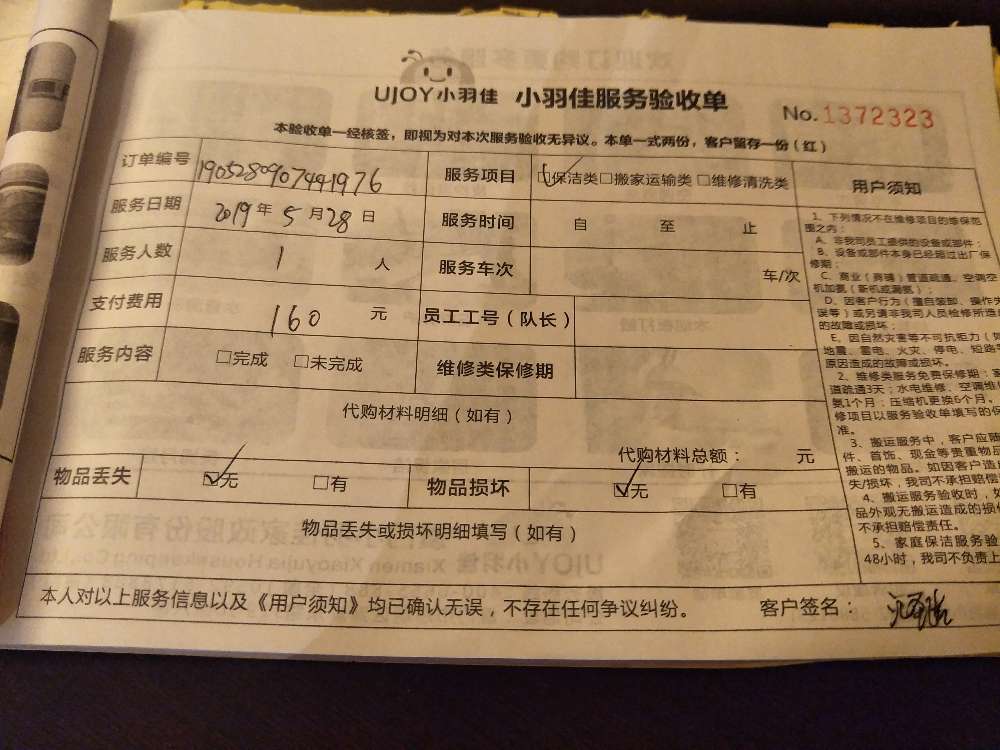 UJOY小羽佳 小羽佳服务验收单 No.1372323
本验收单一经核签，即视为对本次服务验收无异议。本单一式两份，客户留存一份（红）
订单编号 1905280907441976 服务项目 ☑保洁类□搬家运输类□维修清洗类 用户须知
服务日期 2019年5月28日 服务时间 自 至 止
服务人数 1 人 服务车次 车/次
支付费用 160 元 员工工号（队长）
服务内容 □完成 □未完成 维修类保修期
代购材料明细（如有）
代购材料总额： 元
物品丢失 ☑无 □有 物品损坏 ☑无 □有
物品丢失或损坏明细填写（如有）
1、下列情况不在维修项目的维保范
围之内：
A、非我司员工提供的设备或部件；
B、设备或部件本身已经超过出厂保
修期；
C、商业（商铺）管道疏通、空调空
机加氨（新机或漏氨）；
D、因客户行为（擅自装卸、操作失
误等）或另请非我司人员检修所造
的故障或损坏；
E、因自然灾害等不可抗拒力（如
地震、雷电、火灾、停电、短路
原因造成的故障或损坏。
2、维修类服务免费保修期：
道疏通3天；水电维修、空调维
氨1个月；压缩机更换6个月。
修项目以服务验收单填写的保
准。
3、搬运服务中，客户应随
件、首饰、现金等贵重物品
搬运的物品。如因客户造
失/损坏，我司不承担赔偿
4、搬运服务验收时，如
品外观无搬运造成的损
不承担赔偿责任。
5、家庭保洁服务验
48小时，我司不负责上
本人对以上服务信息以及《用户须知》均已确认无误，不存在任何争议纠纷。 客户签名：